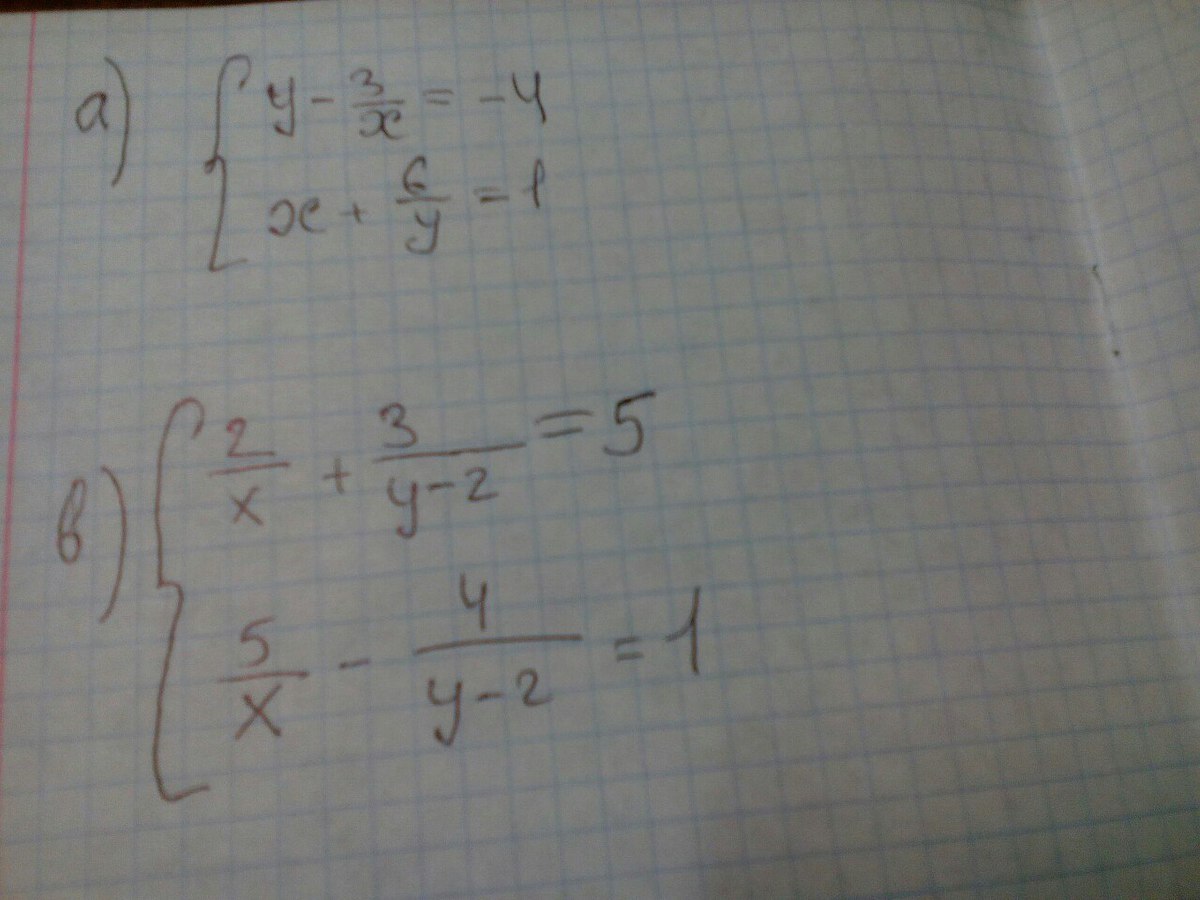 а) { y - 3/x = -4
x + 6/y = 1
в) { 2/x + 3/(y-2) = 5
5/x - 4/(y-2) = 1